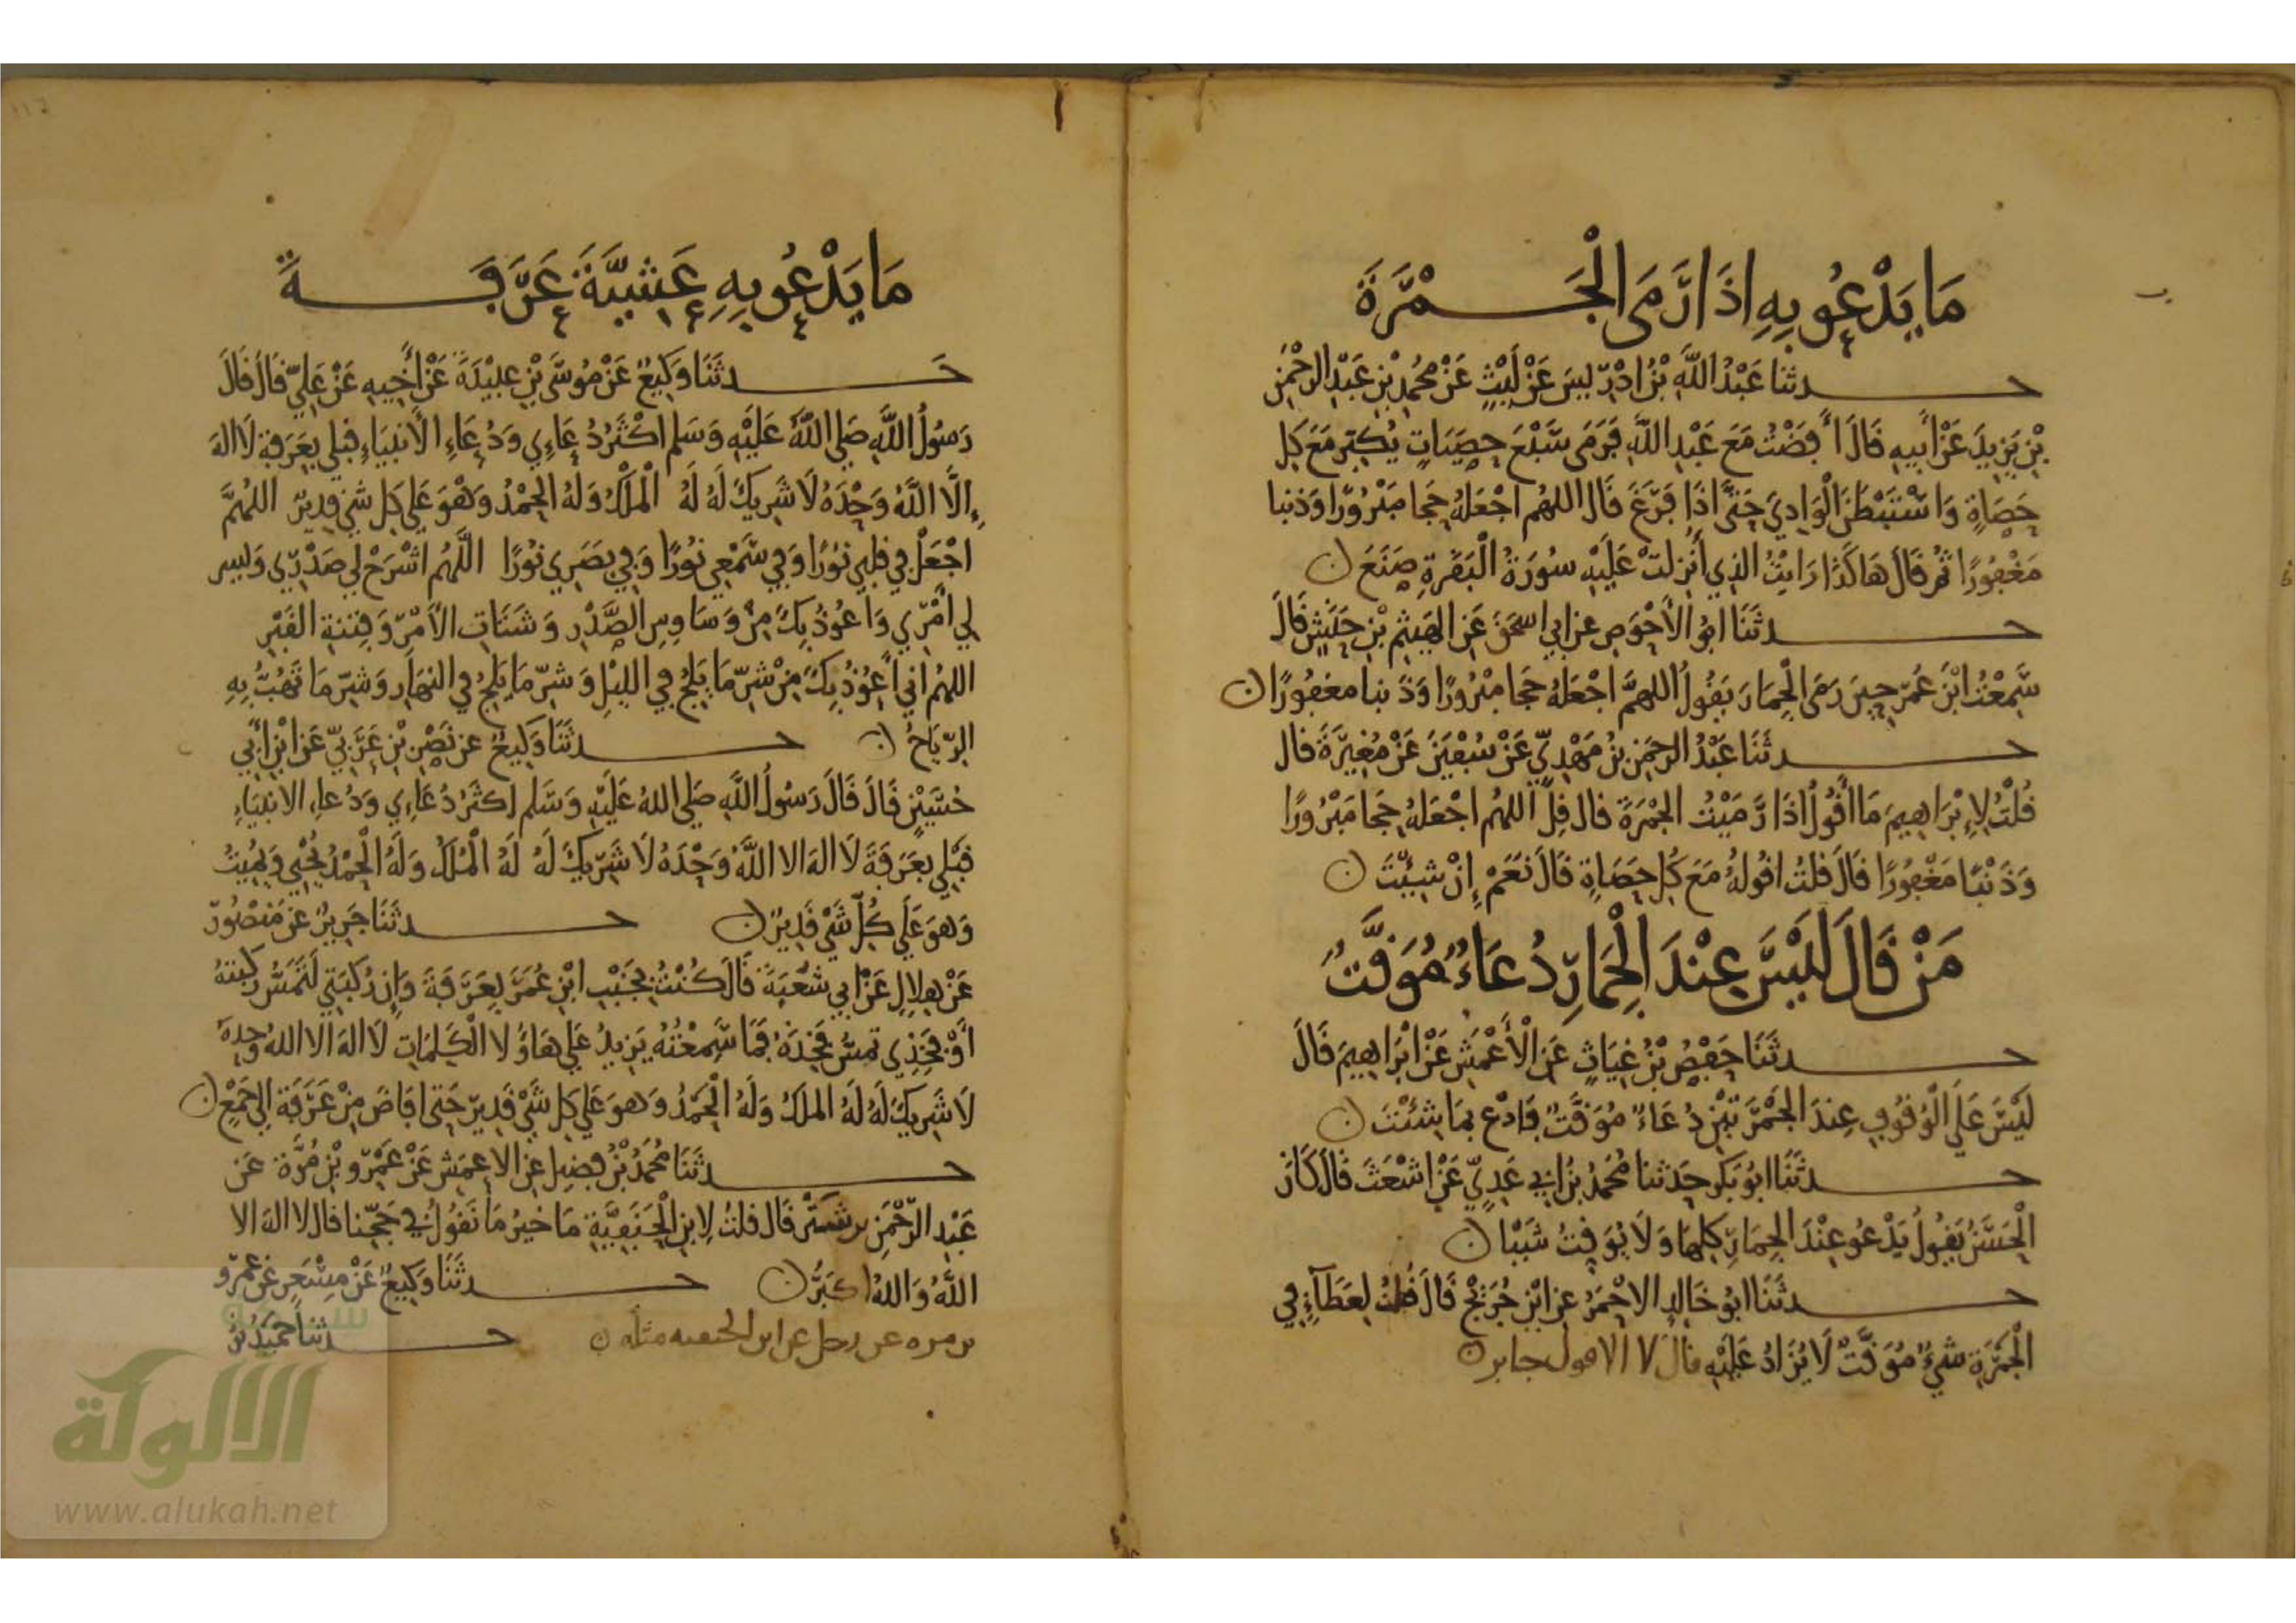 مَا يَدْعُو بِهِ اِذَا رَمَى الْجَمْرَةَ
حدثنا عَبْدُ اللَّهِ بْنُ ادْرِيسَ عَنْ لَيْثٍ عَنْ مُحَمَّدِ بْنِ عَبْدِ الرَّحْمَنِ
بْنِ يَزِيدَ عَنْ أَبِيهِ قَالَ أَفَضْتُ مَعَ عَبْدِ اللَّهِ فَرَمَى سَبْعَ حَصَيَاتٍ يُكَبِّرُ مَعَ كُلِّ
حَصَاةٍ وَاسْتَبْطَنَ الْوَادِيَ حَتَّى اذَا فَرَغَ قَالَ اللهُم اجْعَلْهُ حَجا مَبْرُورًا وَذنبا
مَغْفُورًا ثُمَّ قَالَ هَاكَذَا رَايْتُ الذِي أُنْزِلَتْ عَلَيْهِ سُورَةُ الْبَقَرَةِ صَنَعَ ن
حدثَنَا ابُو الأَحْوَصِ عن ابي اسحَقَ عَنِ الهَيْثَمِ بْنِ حَنَشٍ قَالَ
سَمِعْتُ ابْنَ عُمَرَ حِينَ رَمَى الْجِمَارَ يَقُولُ اللهمَّ اجْعَلْهُ حَجا مَبْرُورًا وَذَنبا مغفُورًا ن
حدثَنَا عَبْدُ الرحمَنِ بْنُ مَهْدِيٍّ عَنْ سُفْيَنَ عَنْ مُغِيرَةَ قال
قُلْتُ لِإِبْرَاهِيمَ مَا أَقُولُ اذَا رَمَيْتُ الجَمْرَةَ قال قُلِ اللهُم اجْعَلْهُ حَجا مَبْرُورًا
وَذَنْبًا مَغْفُورًا قَالَ قلتُ اقُولُهُ مَعَ كُلِّ حَصَاةٍ قَالَ نَعَمْ إِنْ شِيْتَ ن
مَنْ قَالَ لَيْسَ عِنْدَ الْجِمَارِ دُعَاءٌ مُوَقَّتٌ
حدثَنَا حَفْصُ بْنُ غِيَاثٍ عَنِ الْأَعْمَشِ عَنْ ابْرَاهِيمَ قَالَ
لَيْسَ عَلَى الْوُقُوفِ عِندَ الجَمْرَتَيْنِ دُعَاءٌ مُوَقَّتٌ فَادْعُ بمَا شِئْتَ ن
حدثَنَا ابُو بَكر حَدثنا مُحَمدُ بْنُ ابي عَدِيٍّ عَنْ اشْعَثَ قَالَ كَانَ
الْحَسَنُ يَقُولُ يَدْعُو عِنْدَ الجِمَارِ كلِهَا وَلَا يُوَقِتُ شَيْئا ن
حدثَنَا ابُو خَالِدٍ الاحْمَرُ عن ابْنِ جُرَيْجٍ قَالَ قُلتُ لِعَطَآءٍ فِي
الْجَمْرَةِ شيءٌ مُوَقَّتٌ لَا يُزَادُ عَلَيْهِ قال لا الا قول جابر ن
مَا يَدْعُو بِهِ عَشِيَّةَ عَرَفَةَ
حدثَنَا وَكِيعٌ عَنْ مُوسَى بْنِ عبَيْدَةَ عَنْ أَخِيهِ عَنْ عَلِيٍّ قَالَ قَالَ
رَسُولُ اللَّهِ صَلى اللَّهُ عَلَيْهِ وَسَلم اكْثَرُ دُعَاءِي وَدُعَاءِ الأَنبيَاءِ قبلي بعَرَفةِ لَا الهَ
إِلَّا اللَّهُ وَحْدَهُ لَا شَرِيكَ لَهُ لَهُ الْمُلْكُ وَلَهُ الحَمْدُ وَهْوَ عَلَى كل شَيْءٍ قَدِيرٌ اللهُمَّ
اجْعَلْ في قلبِي نُورًا وَفِي سَمْعِي نُورًا وَفِي بَصَرِي نُورًا اللَّهُم اشْرَحْ لِي صَدْرِي وَيَسِر
لِي أَمْرِي وَاعُوذُ بِكَ مِنْ وَسَاوِسِ الصَّدْرِ وَشَتَاتِ الأَمْرِ وَفِتنةِ القَبْرِ
اللهُم اني أَعُوذُ بِكَ مِنْ شَرِّ مَا يَلِجُ فِي اللَّيْلِ وَشَرِّ مَا يَلِجُ في النهَارِ وَشَرِّ مَا تَهُبُّ بِهِ
الرِّيَاحُ ن حدثَنَا وَكِيعٌ عن نَضْرِ بْنِ عَرَبِيٍّ عَنِ ابْنِ أَبِي
حُسَيْنٍ قَالَ قَالَ رَسُولُ اللَّهِ صَلى اللهُ عَلَيْهِ وَسَلم اكثَرُ دُعَاءِي وَدُعاءِ الانبيَاءِ
قَبْلِي بعَرَفَةَ لَا الهَ الا اللَّهُ وَحْدَهُ لَا شَرِيكَ لَهُ لَهُ الْمُلكُ وَلَهُ الْحَمْدُ يُحْيِي وَيُمِيتُ
وَهوَ عَلَى كُلِّ شَيْءٍ قَدِيرٌ ن حدثَنَا جَرِيرٌ عن مَنْصُورٍ
عَنْ هِلَالٍ عَنْ ابي شُعْبَةَ قَالَ كُنْتُ بجَنْبِ ابْنِ عُمَرَ بِعَرَفَةَ وَإِن رُكبَتِي لَتَمَسُّ رُكبتهُ
أَوْ فَخِذِي تمَسُّ فَخِذَهُ فَمَا سَمِعْتُهُ يَزِيدُ عَلى هَاؤُلا الْكَلِمَاتِ لَا الهَ الا اللهُ وَحْدَهُ
لَا شَرِيكَ لَهُ لَهُ الملكُ وَلَهُ الْحَمْدُ وَهوَ عَلَى كل شَيْءٍ قَدِيرٌ حَتى افَاضَ مِنْ عَرَفَةَ الى جَمْعٍ ن
حدثَنَا مُحَمدُ بْنُ فضيلٍ عن الاعمَش عَنْ عَمْرِو بْنِ مُرَّةَ عَن
عَبْدِ الرَّحْمَنِ بن بشر قَال قلتُ لِابنِ الْحَنَفِيَّةِ مَا خَيرُ مَا نَقُولُ في حَجِّنا قال لا الهَ الا
اللَّهُ وَاللهُ اكبَرُ ن حدثَنَا وَكِيعٌ عَنْ مِسْعَرٍ عن عَمْرِو
بن مره عن رجل عن ابن الحنفيه مثله ن حدثنا حُمَيْدُ بْنُ
الألوكة
www.alukah.net